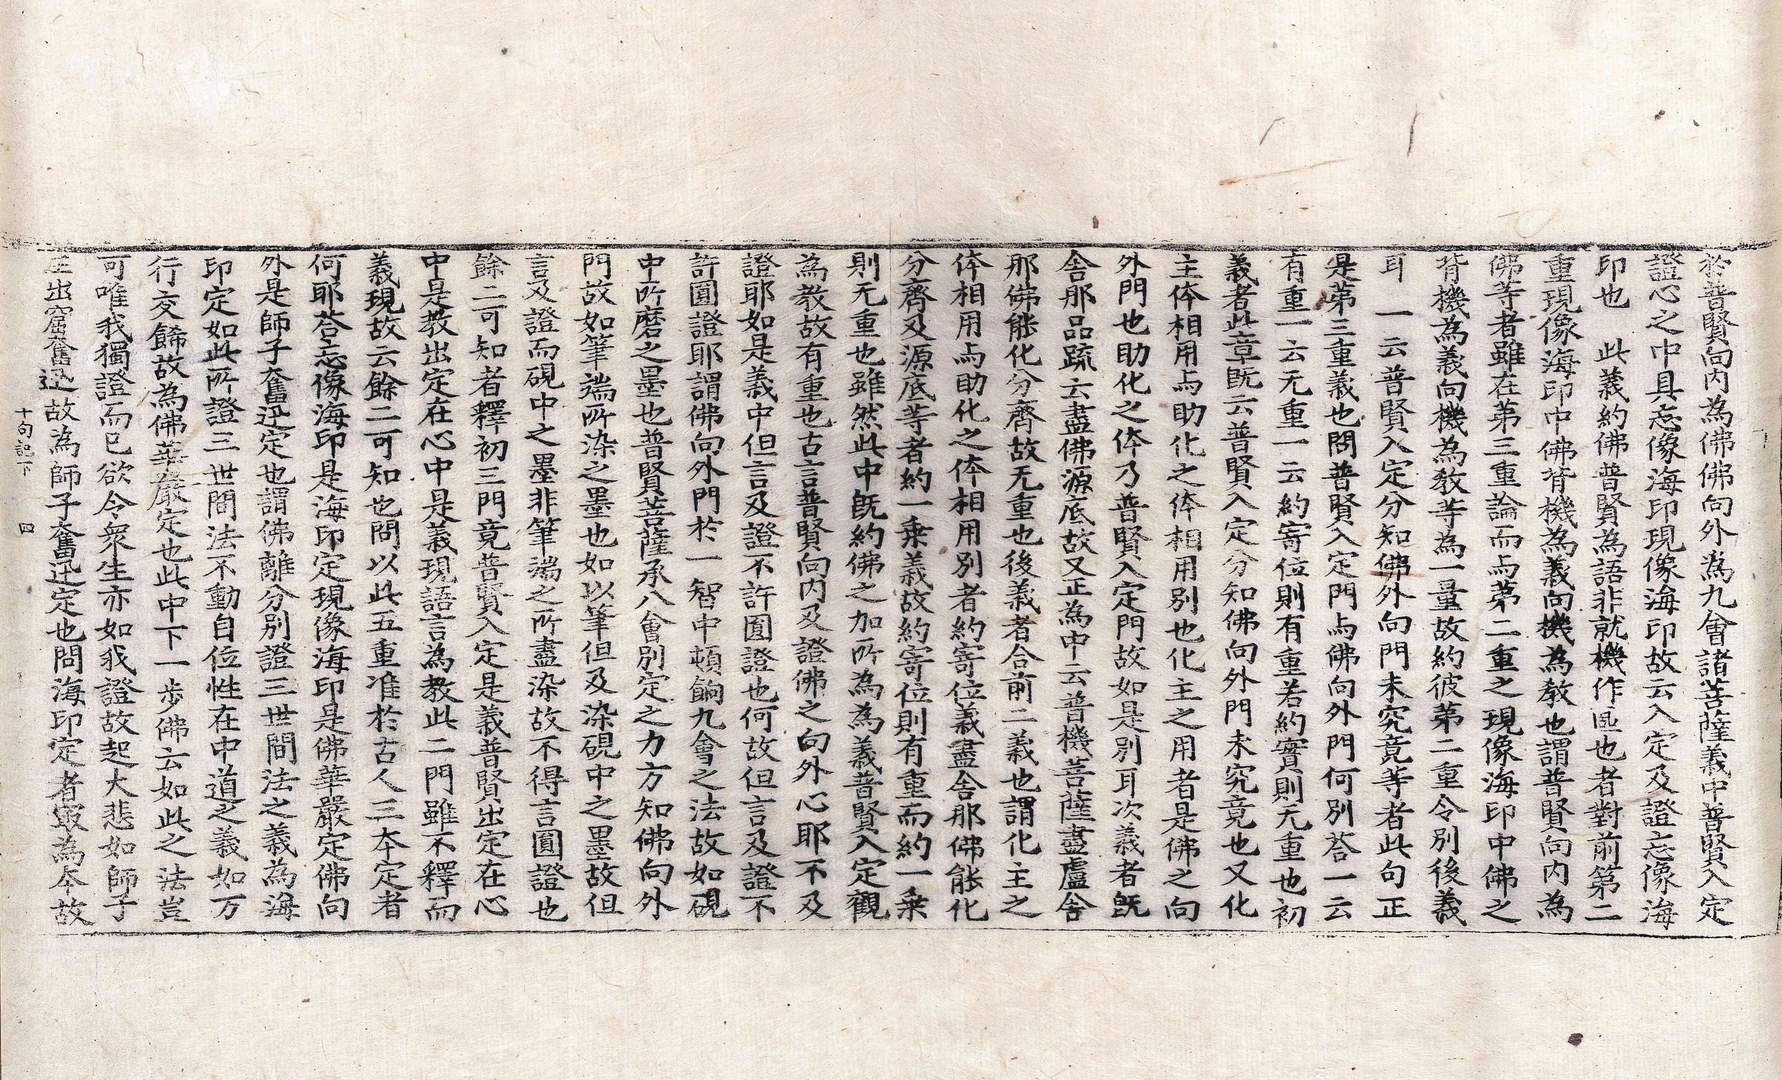 於普賢向内為佛佛向外為九會諸菩薩義中普賢入定
證心之中具忘像海印現像海印故云入定及證忘像海
印也　此義約佛普賢為語非就機作也者對前第二
重現像海印中佛背機為義向機為教也謂普賢向内為
佛等者雖在第三重論而与第二重之現像海印中佛之
背機為義向機為教等為一量故約彼第二重令別後義
耳　一云普賢入定分知佛外向門未究竟等者此句正
是第三重義也問普賢入定門与佛向外門何別答一云
有重一云无重一云約寄位則有重若約實則无重也初
義者此章既云普賢入定分知佛向外門未究竟也又化
主体相用与助化之体相用別也化主之用者是佛之向
外門也助化之体乃普賢入定門故如是別耳次義者既
舍那品疏云盡佛源底故又正為中云普機菩薩盡盧舍
那佛能化分齊故无重也後義者合前二義也謂化主之
体相用与助化之体相用別者約寄位義盡舍那佛能化
分齊及源底等者約一乗義故約寄位則有重而約一乗
則无重也雖然此中既約佛之加所為為義普賢入定觀
為教故有重也古言普賢向内及證佛之向外心耶不及
證耶如是義中但言及證不許圓證也何故但言及證不
許圓證耶謂佛向外門於一智中頓餉九會之法故如硯
中所磨之墨也普賢菩薩承八會別定之力方知佛向外
門故如筆端所染之墨也如以筆但及染硯中之墨故但
言及證而硯中之墨非筆端之所盡染故不得言圓證也
餘二可知者釋初三門竟普賢入定是義普賢出定在心
中是教出定在心中是義現語言為教此二門雖不釋而
義現故云餘二可知也問以此五重准於古人三本定者
何耶答忘像海印是海印定現像海印是佛華嚴定佛向
外是師子奮迅定也謂佛離分別證三世間法之義為海
印定如此所證三世間法不動自位性在中道之義如万
行交餙故為佛華嚴定也此中下一步佛云如此之法豈
可唯我獨證而已欲令衆生亦如我證故起大悲如師子
王出窟奮迅故為師子奮迅定也問海印定者冣為本故
十句記下　四